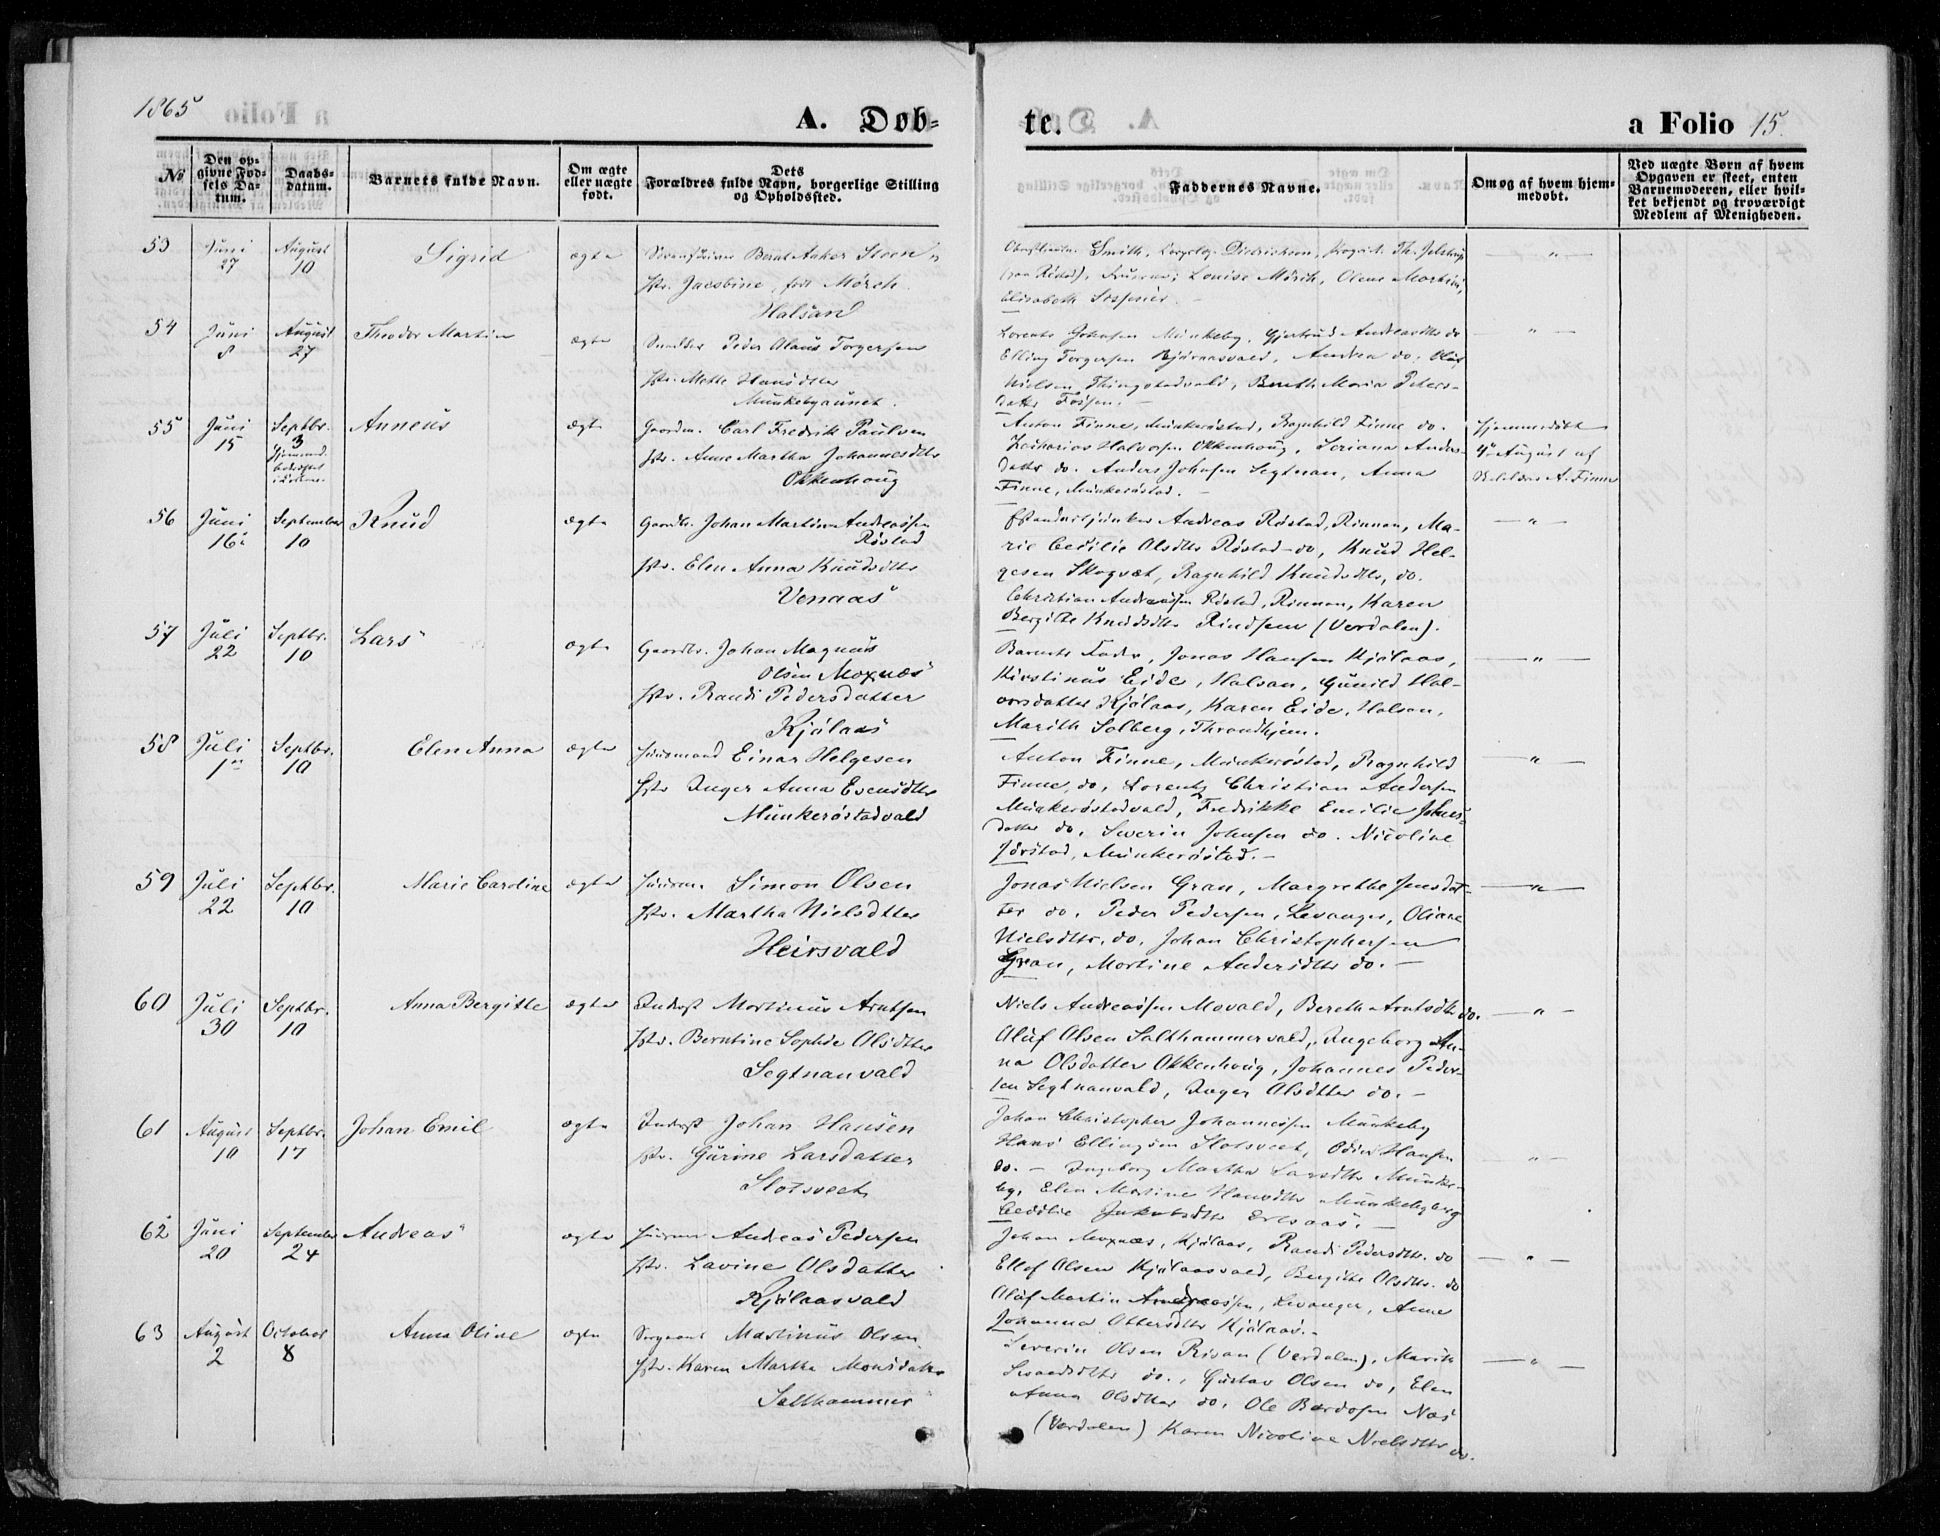 1865
A. Døb-
te.
a Folio 15.
No
Den op-
givne Fød-
sels Da-
tum.
Daabs-
datum.
Barnets fulde Navn.
Om ægte
eller uægte
født.
Dets
Forældres fulde Navn, borgerlige Stilling
og Opholdssted.
Faddernes Navne.
Om og af hvem hjem-
medøbt.
Ved uægte Børn af hvem
Opgaven er skeet, enten
Barnemoderen, eller hvil-
ket bekjendt og troværdigt
Medlem af Menigheden.
53 Juni 27 August 10 Sigrid ægte
Bernt Anker Steen
Jacobine, født Mörch
Halsan
Smith, Didrichsen,
Louise Mörch, Olene Martine,
Elisabeth
54 Juni 8 August 27 Theodor Martin ægte
Peder Olaus Torgersen
Hstr. Mette Hansdtter
Munkebyaunet.
Lorents Johnsen Munkeby, Gjertrud Andreasdtter do
Elling Torgersen Andrea do, Oluf
Nielsen Thingstadvald, Bereth Maria Peters-
datter Fossen.
55 Juni 15 Septbr. 3 Anneus ægte
Gaardm. Carl Fredrik Paulsen
Hstr. Anne Martha Johannesdtter
Okkenhoug
Anton Finne, Munkeröstad, Ragnhild Finne do.
Zacharias Halvorsen Okkenhoug, Seriana Anders-
datter do. Anders Johnsen Segtnan, Anna
Finne, Munkeröstad.
Hjemmedöbt
9de August af
A. Finne
56 Juni 16 September 10 Knud ægte
Gaardbr. Johan Martin Andreassen
Röstad
Hstr. Elen Anna Knudsdtter
Venaas
Andreas Röstad, Rinnan, Ma-
rie Cecilie Olsdtr Röstad do, Knud Hel-
gesen Skogset, Ragnhild Knudsdtr, do.
Christian Andreassen Röstad, Rinnan, Karen
Bergitte Knudsdtr Rindsem (Verdalen).
57 Juli 22 Septbr. 10 Lars ægte
Gaardbr. Johan Magnus
Olsen Moxnæs
Hstr. Randi Pedersdatter
Kjölaas
Barnets Fader, Jonas Hansen Kjölaas,
Kirstinus Eide, Halsan, Gunild Hal-
vorsdatter Kjölaas, Karen Eide, Halsan,
Marith Solberg, Throndhjem.
58 Juli 1 Septbr. 10 Elen Anna ægte
Huusmand Einar Helgesen
Hstr Inger Anna Evensdtr
Munkeröstadvald
Anton Finne, Munkeröstad, Ragnhild
Finne, do, Lorentz Christian Andersen
Munkeröstadvald, Fredrikke Emilie Johns-
datter do, Severin Johnsen do. Nicoline
Jörstad, Munkeröstad.
59 Juli 22 Septbr. 10 Marie Caroline ægte
Huusm. Simon Olsen
Hstr. Martha Nielsdtter
Heirsvald
Jonas Nielsen Gran, Margrethe Jensdat-
ter do. Peder Pedersen, Levanger, Oliane
Nielsdtr. do. Johan Christophersen
Gran, Martine Andersdtr do.
60 Juli 30 Septbr. 10 Anna Bergitte ægte
Inderst Martinus Arntsen
Hstr. Berntine Sophie Olsdtter
Segtnanvald
Niels Andreassen Movald, Bereth Arntsdtr do.
Oluf Olsen Salthammervald, Ingeborg An-
na Olsdatter Okkenhoug, Johannes Peder-
sen Segtnanvald, Inger Olsdtter do.
61 August 10 Septbr. 17 Johan Emil ægte
Inderst Johan Hansen
Hstr. Gurine Larsdatter
Slotsvect
Johan Christopher Johannesen Munkeby
Hans Ellingsen Slotsvect, Odin Hansen
do. Ingeborg Martha Larsdtr Munke-
by, Elen Martine Hansdtr Munkebyberg
Cecilie Jakobsdtr
62 Juni 20 September 24 Andreas ægte
Huusm Andreas Pedersen
Hstr. Lavine Olsdatter
Kjölaasvald
Johan Moxnæs, Kjölaas, Randi Pedersdtr. do
Ellef Olsen Kjölaasvald, Bergithe Olsdtr. do
Oluf Martin Andreassen, Levanger, Anne
Johanna Ottersdtr Kjölaas.
63 August 2 October 8 Anna Oline ægte
Sergeant Martinus Olsen
Hstr. Karen Martha Monsdatter
Salthammer
Severin Olsen Risan (Verdalen), Marith
do., Gustav Olsen do, Elen
Anna Olsdtter do, Ole Bardosen Næs
(Verdalen) Karen Nicoline Nielsdtr do.